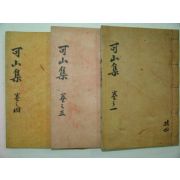 可山集 卷之一
可山集 卷之三
可山集 卷之四